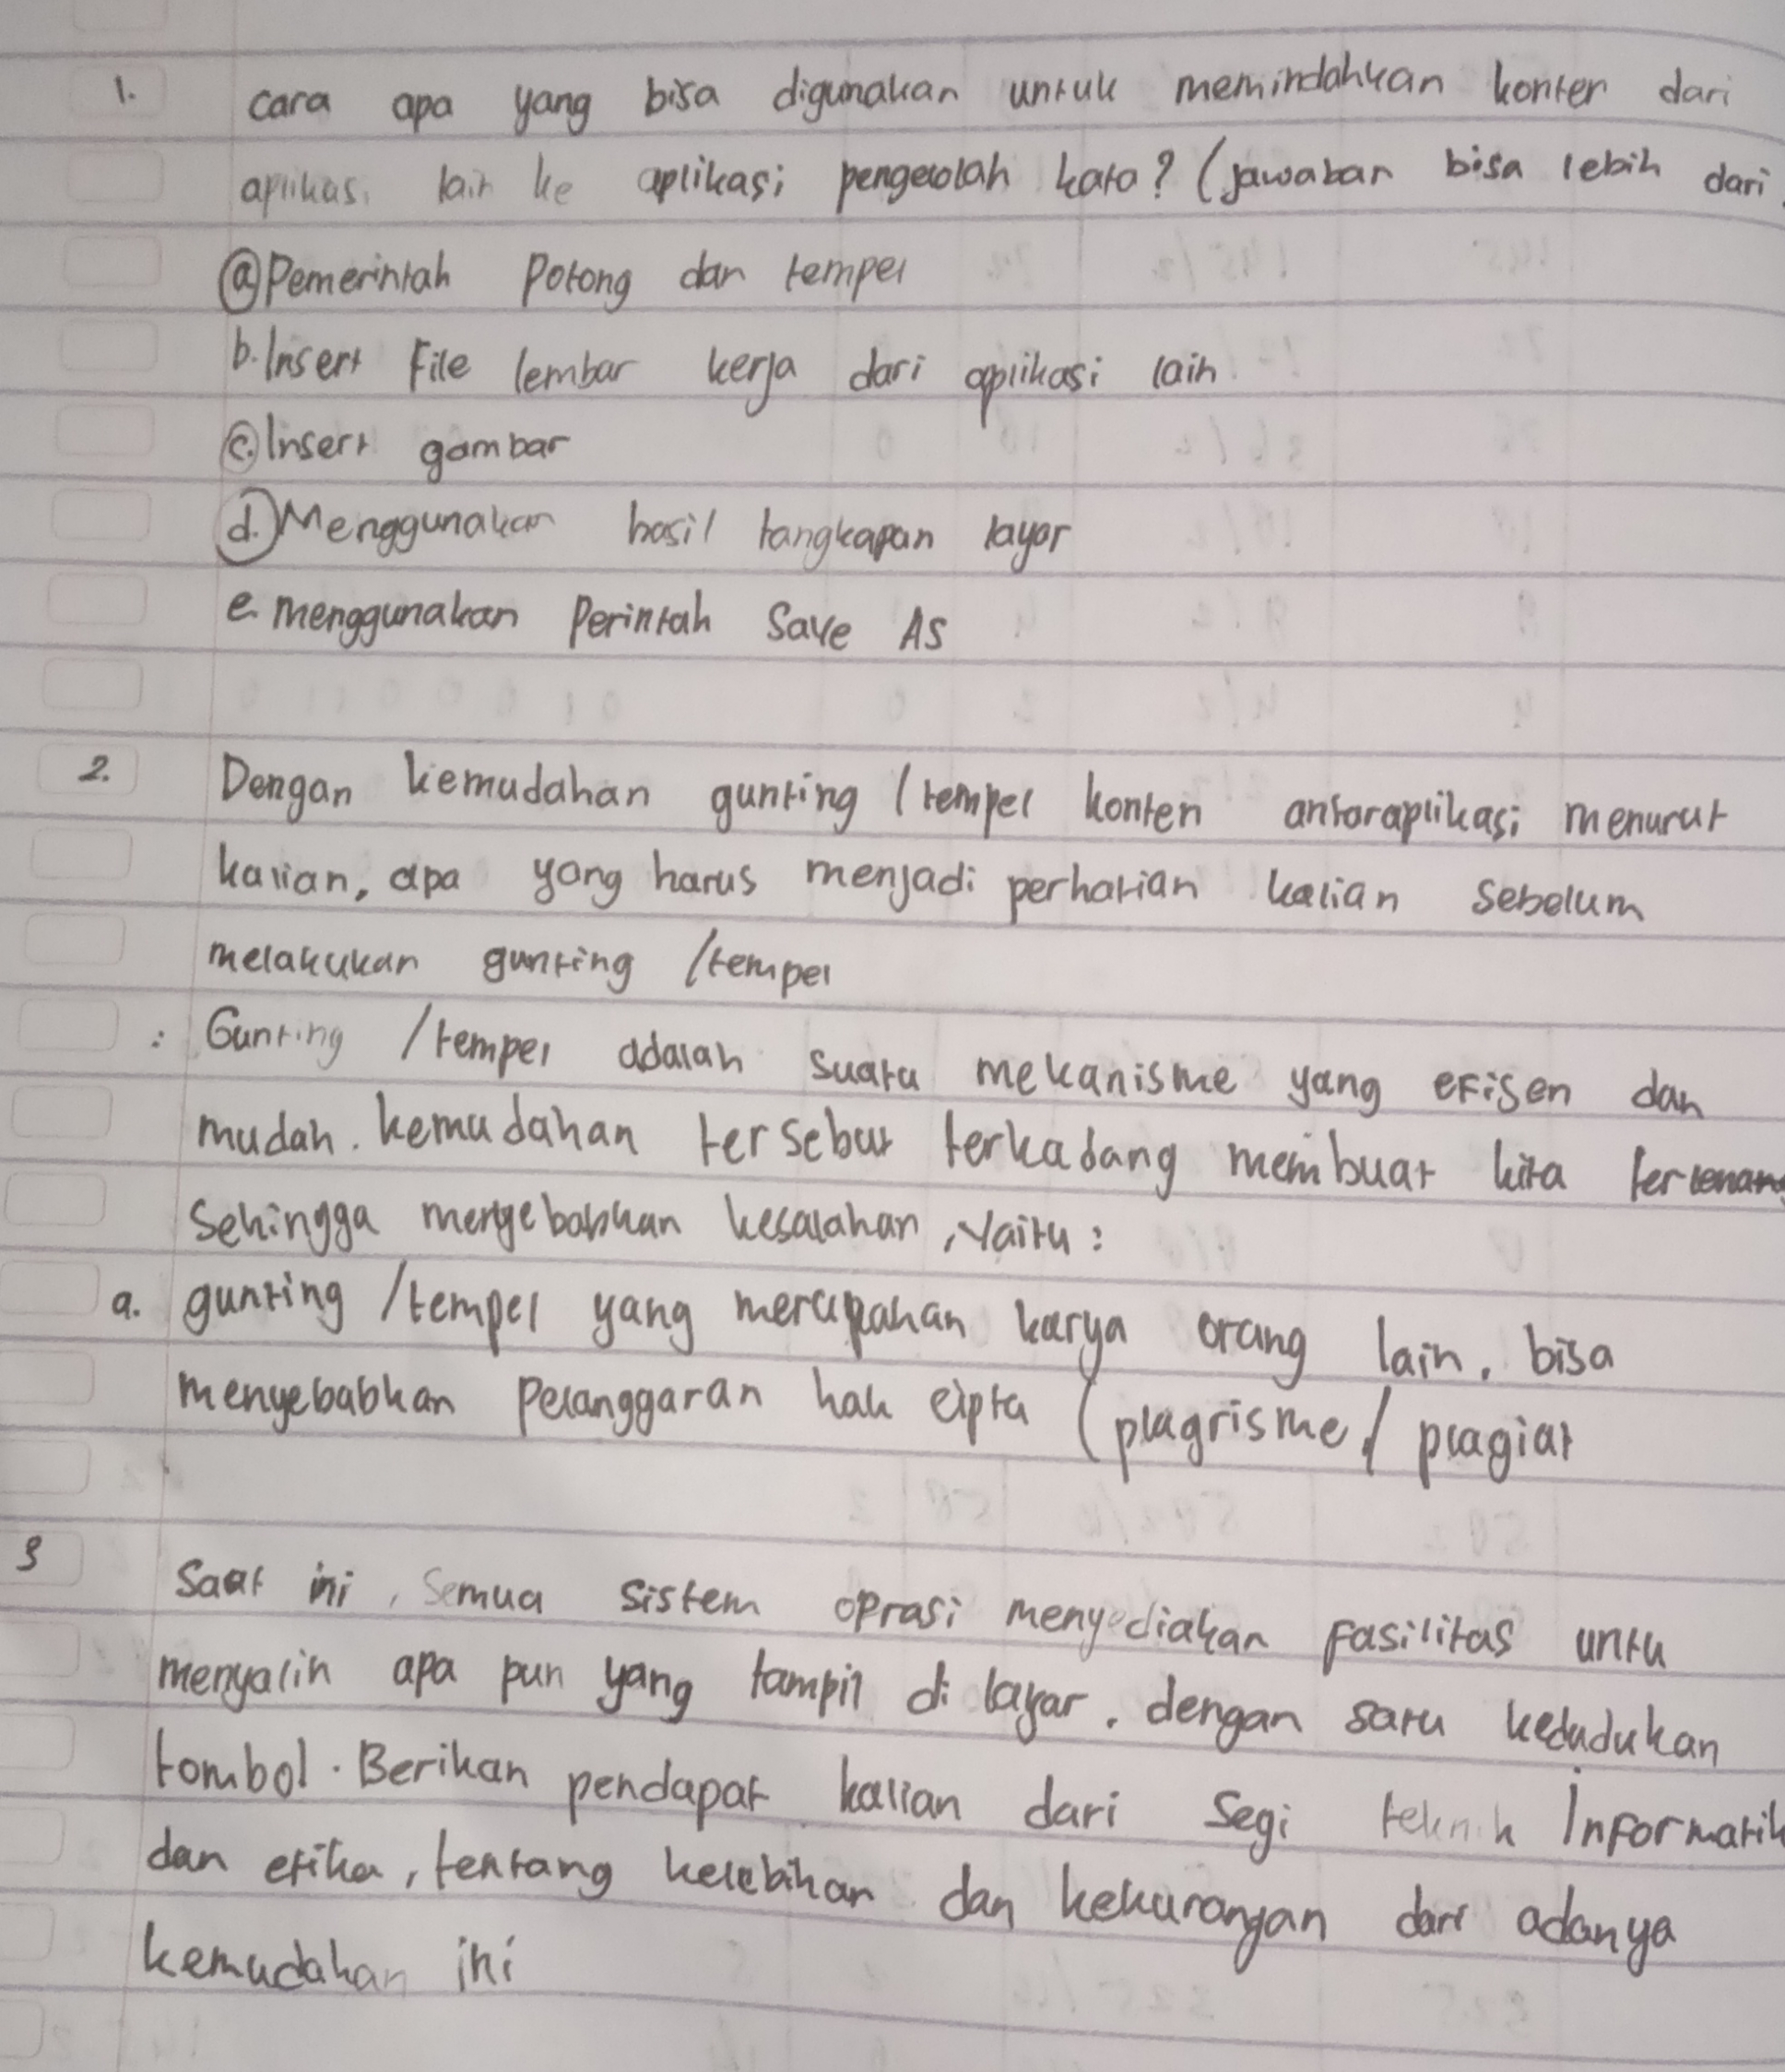 1. cara apa yang bisa digunakan untuk memindahkan konten dari
aplikasi lain ke aplikasi pengeolah kata? (jawaban bisa lebih dari
a. Pemerintah Potong dan tempel
b. Insert File lembar kerja dari aplikasi lain
c. Insert gambar
d. Menggunakan hasil tangkapan layar
e. menggunakan Perintah Save As
2. Dengan kemudahan gunting / tempel konten antaraplikasi menurut
kalian, apa yang harus menjadi perhatian kalian sebelum
melakukan gunting /tempel
: Gunting /tempel adalah suatu mekanisme yang efisen dan
mudah. kemudahan tersebut terkadang membuat kita
Sehingga menyebabkan kesalahan, Yaitu :
a. gunting /tempel yang merupakan karya orang lain, bisa
menyebabkan Pelanggaran hak cipta (plagrisme / plagiat
3 Saat ini, Semua sistem oprasi menyediakan fasilitas untu
menyalin apa pun yang tampil di layar. dengan satu kedudukan
tombol. Berikan pendapat kalian dari Segi teknik Informatik
dan etika, tentang kelebihan dan kekurangan dari adanya
kemudahan ini